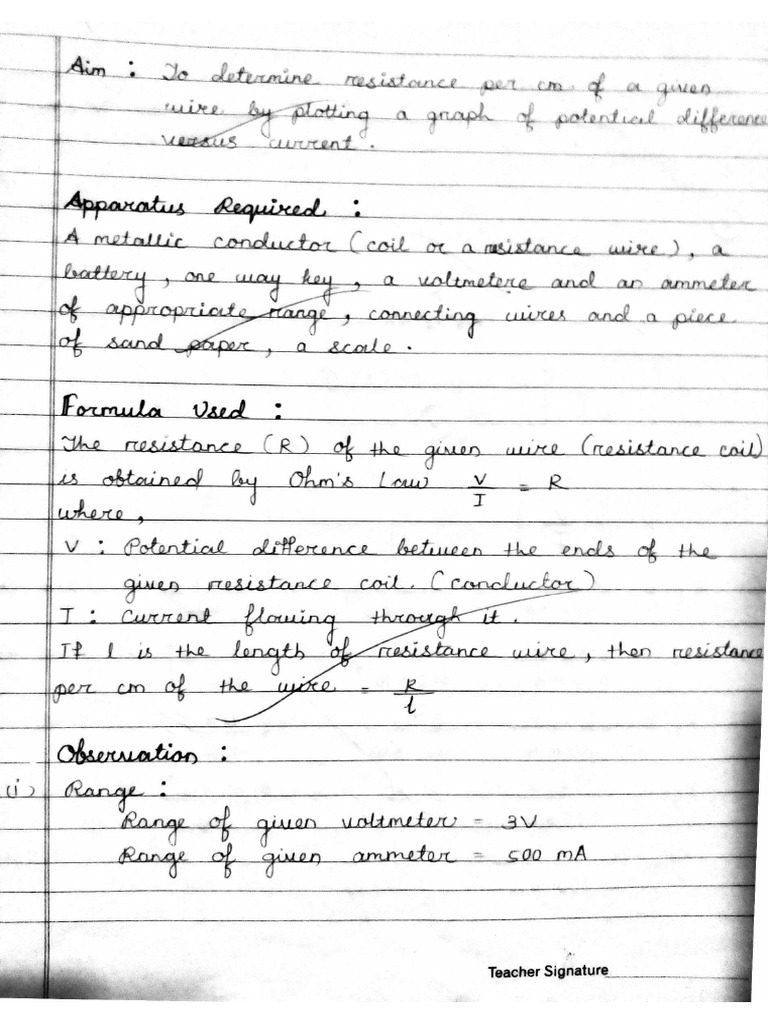 Aim : To determine resistance per cm. of a given
wire by plotting a graph of potential difference
versus current.
Apparatus Required :
A metallic conductor (coil or a resistance wire), a
battery, one way key, a voltmetere and an ammeter
of appropriate range, connecting wires and a piece
of sand paper, a scale.
Formula Used :
The resistance (R) of the given wire (resistance coil)
is obtained by Ohm's Law V/I = R
where,
V : Potential difference between the ends of the
given resistance coil. (conductor)
I : Current flowing through it.
If l is the length of resistance wire, then resistance
per cm of the wire = R/l
Observation :
(i) Range :
Range of given voltmeter = 3V
Range of given ammeter = 500 mA
Teacher Signature